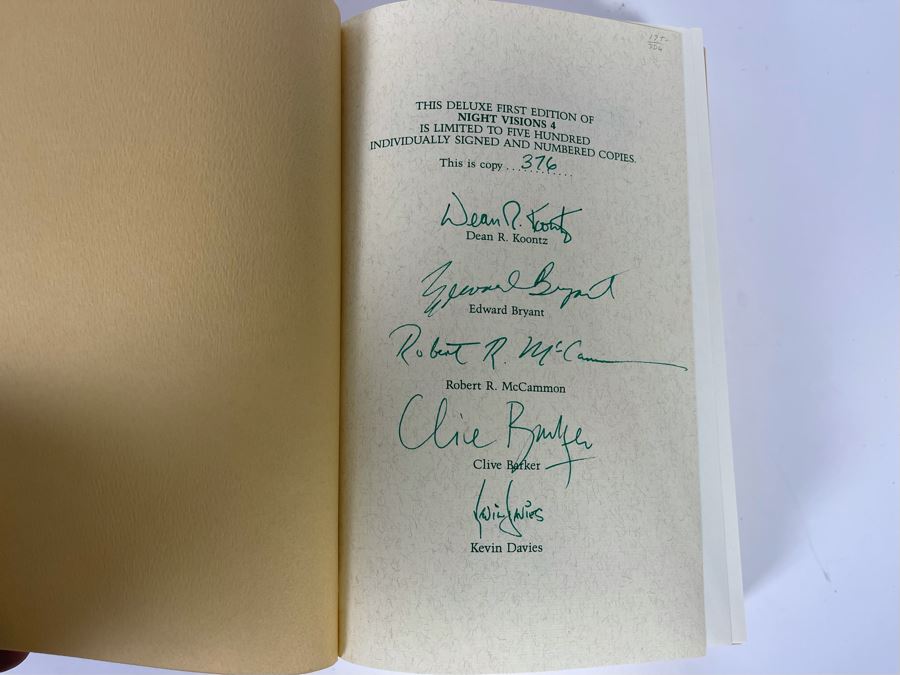 THIS DELUXE FIRST EDITION OF
NIGHT VISIONS 4
IS LIMITED TO FIVE HUNDRED
INDIVIDUALLY SIGNED AND NUMBERED COPIES.
This is copy . . 376 . . . .
Dean R. Koontz
Dean R. Koontz
Edward Bryant
Edward Bryant
Robert R. McCammon
Robert R. McCammon
Clive Barker
Clive Barker
Kevin Davies
Kevin Davies